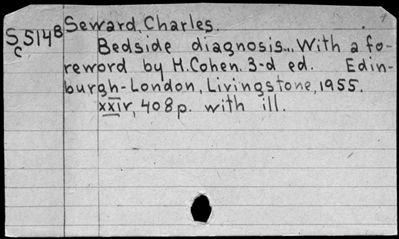 Seward, Charles.
S 5148
c
Bedside diagnosis... With a fo-
reword by H. Cohen. 3-d ed. Edin-
burgh-London, Livingstone, 1955.
xxiv, 408 p. with ill.